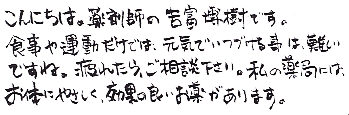 こんにちは。薬剤師の吉富博樹です。
食事や運動だけでは、元気でいつづける事は、難い
ですね。疲れたら、ご相談下さい。私の薬局には、
お体にやさしく、効果の良いお薬があります。